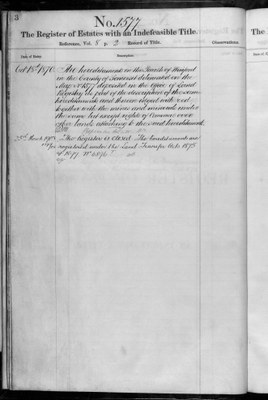 3
No. 1577
The Register of Estates with an Indefeasible Title.
Reference, Vol. 8 p. 3 Record of Title.
Observations.
Date of Entry.
Description.
Oct 18th 1870. The hereditaments in the Parish of
in the County of Surrey delineated on the
Map No 1577 deposited in the Office of Land
Registry as part of the description of the same
hereditaments and thereon edged with red
together with the mines and minerals under
the same but except rights of Common over
other lands attaching to the said hereditaments
March This Register is closed. The hereditaments are
registered under the Land Transfer Acts 1875
1897.